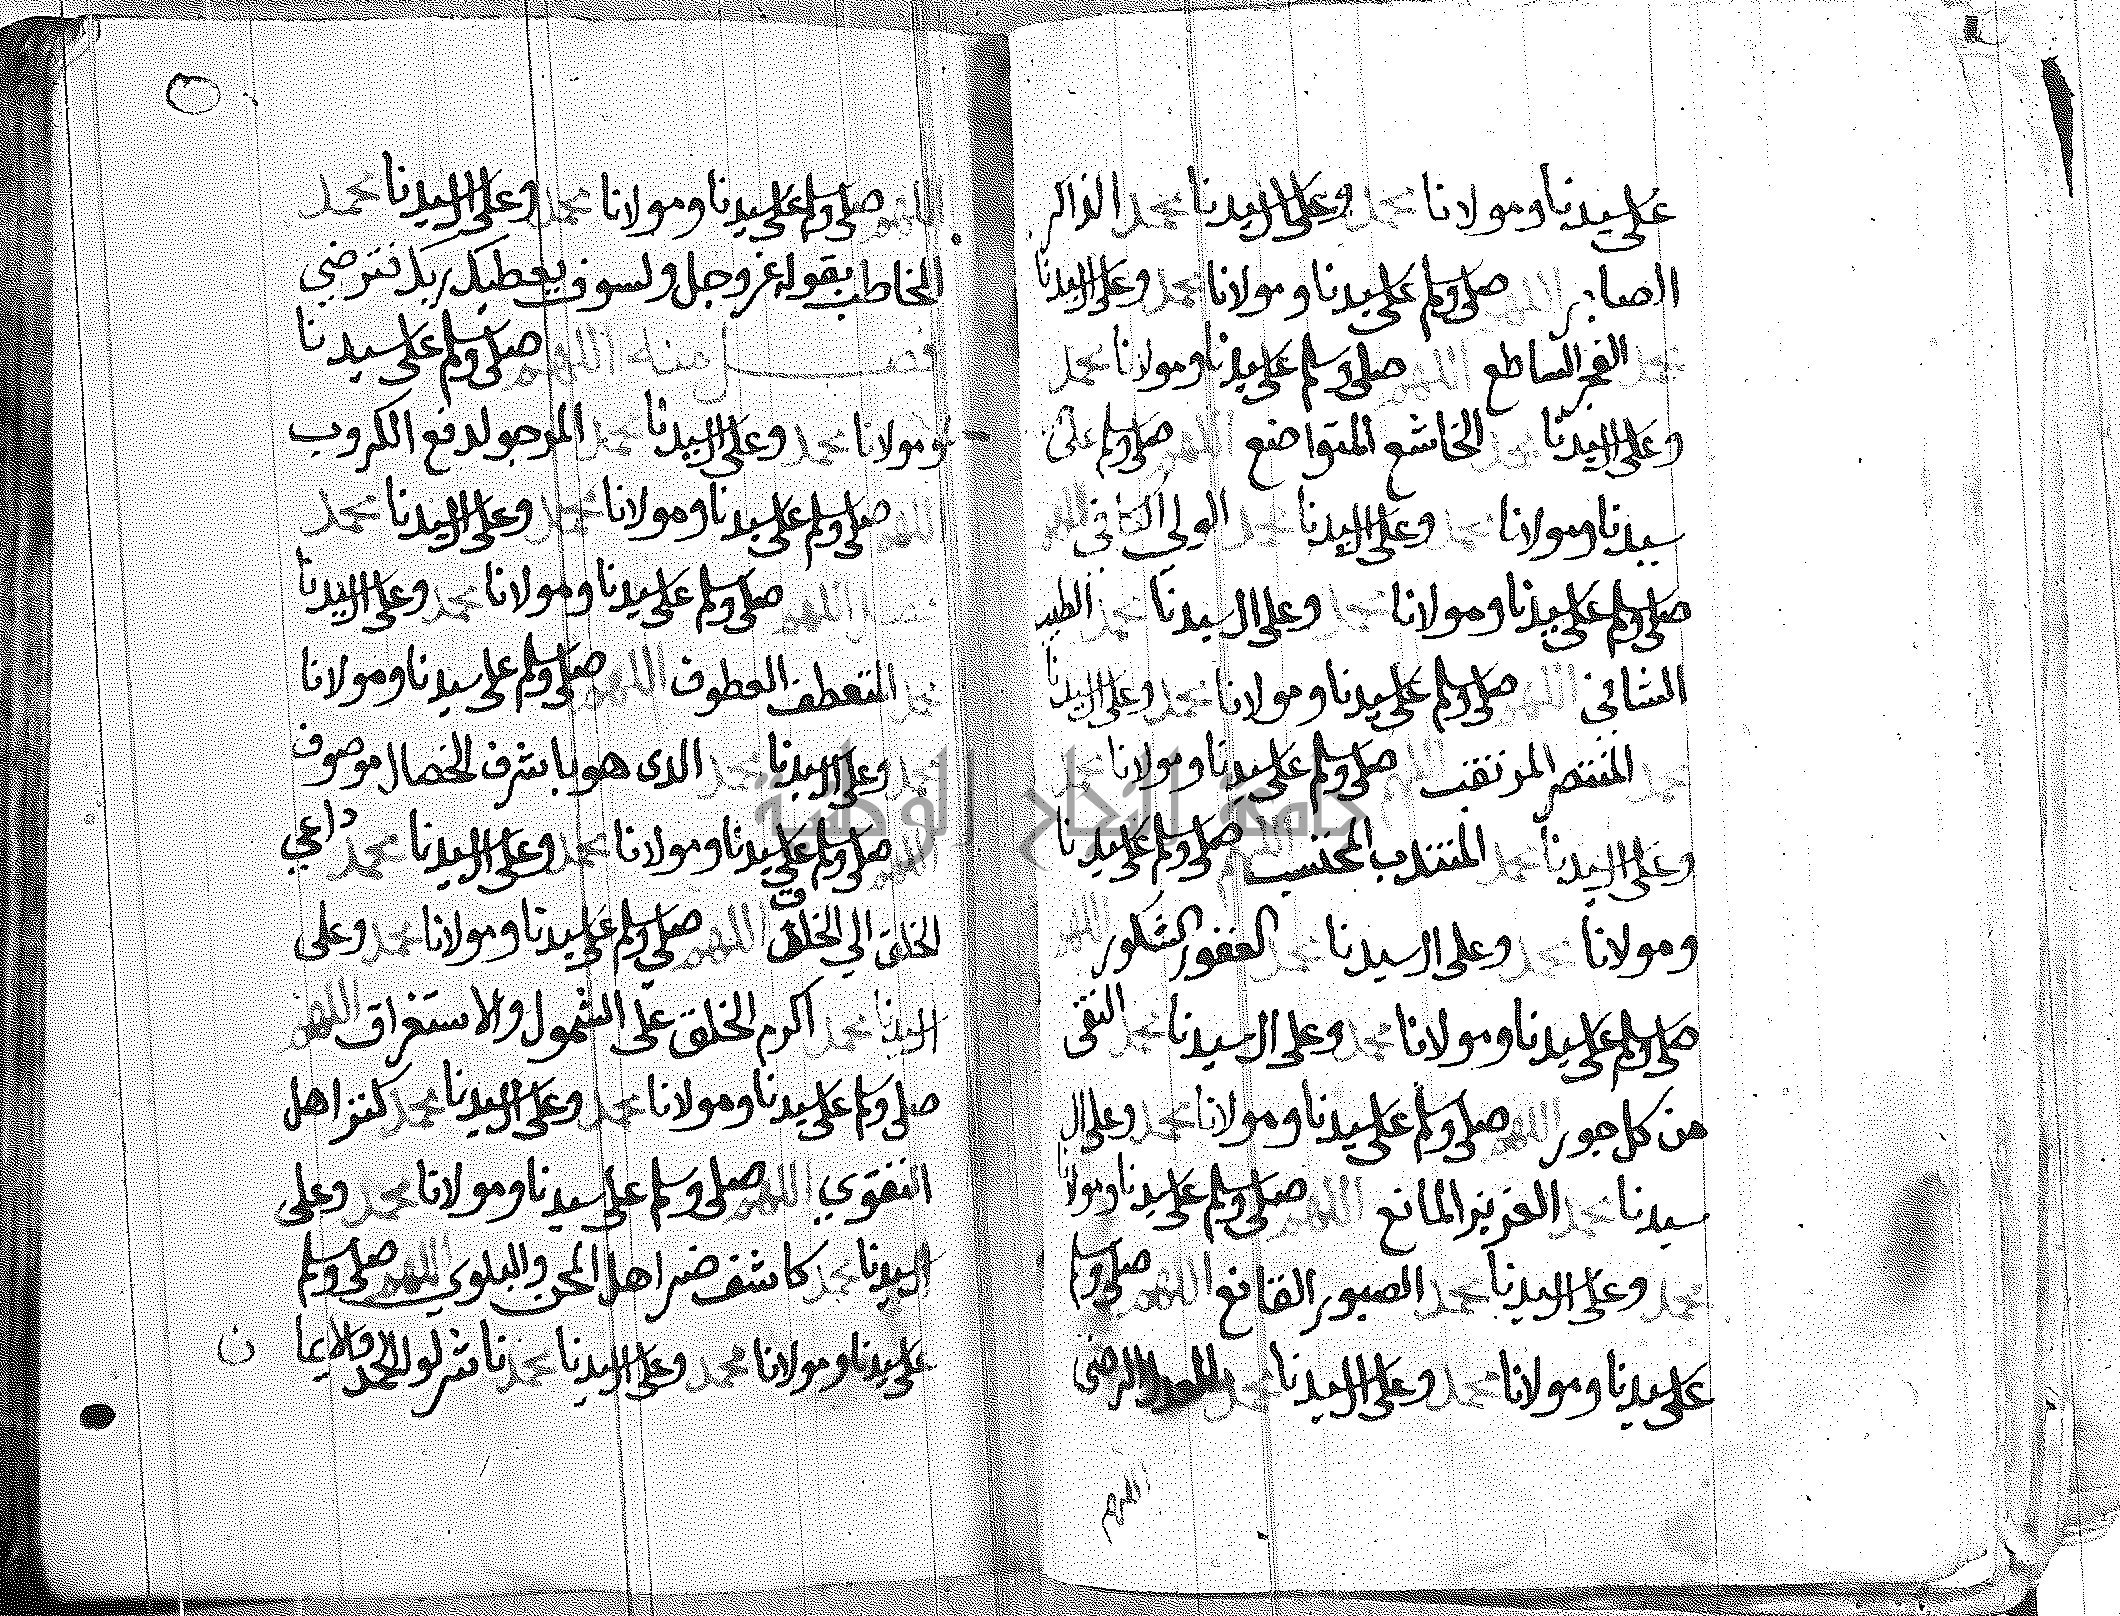 على سيدنا ومولانا محمد وعلى ال سيدنا محمد الذاكر
الصابر اللهم صلى وسلم على سيدنا ومولانا محمد وعلى ال سيدنا
محمد الفجر الساطع اللهم صلى وسلم على سيدنا ومولانا محمد
وعلى ال سيدنا محمد الخاشع المتواضع اللهم صلى وسلم على
سيدنا ومولانا محمد وعلى ال سيدنا محمد الولي الكافي اللهم
صلى وسلم على سيدنا ومولانا محمد وعلى ال سيدنا محمد الطبيب
الشافي اللهم صلى وسلم على سيدنا ومولانا محمد وعلى ال سيدنا
محمد المنتصر المرتقب اللهم صلى وسلم على سيدنا ومولانا محمد
وعلى ال سيدنا محمد المنتدب المحتسب اللهم صلى وسلم على سيدنا
ومولانا محمد وعلى ال سيدنا محمد الغفور الشكور اللهم
صلى وسلم على سيدنا ومولانا محمد وعلى ال سيدنا محمد النقى
من كل جور اللهم صلى وسلم على سيدنا ومولانا محمد وعلى ال
سيدنا محمد العزيز المانع اللهم صلى وسلم على سيدنا ومولانا
محمد وعلى ال سيدنا محمد الصبور القانع اللهم صلى وسلم
على سيدنا ومولانا محمد وعلى ال سيدنا محمد الرضى
اللهم
اللهم صلى وسلم على سيدنا ومولانا محمد وعلى ال سيدنا محمد
المخاطب بقوله عز وجل ولسوف يعطيك ربك فترضي
فصل منه اللهم صلى وسلم على سيدنا
ومولانا محمد وعلى ال سيدنا محمد المرجو لدفع الكروب
اللهم صلى وسلم على سيدنا ومولانا محمد وعلى ال سيدنا محمد
اللهم صلى وسلم على سيدنا ومولانا محمد وعلى ال سيدنا
محمد المتعطف العطوف اللهم صلى وسلم على سيدنا ومولانا
محمد وعلى ال سيدنا محمد الذى هو باشرف الخصال موصوف
اللهم صلى وسلم على سيدنا ومولانا محمد وعلى ال سيدنا محمد داعي
الخلق الي الخلاق اللهم صلى وسلم على سيدنا ومولانا محمد وعلى
ال سيدنا محمد اكرم الخلق على الشمول والاستغراق اللهم
صلى وسلم على سيدنا ومولانا محمد وعلى ال سيدنا محمد كنز اهل
التقوي اللهم صلى وسلم على سيدنا ومولانا محمد وعلى
ال سيدنا محمد كاشف ضر اهل المحن والبلوي اللهم صلى وسلم
على سيدنا ومولانا محمد وعلى ال سيدنا محمد ناشر لواء الحمد والايمان
جامعة النجاح الوطنية